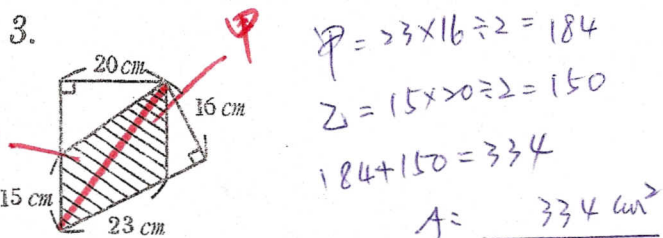 3.
甲
20 cm
16 cm
15 cm
23 cm
甲=23×16÷2=184
乙=15×20÷2=150
184+150=334
A: 334 cm²